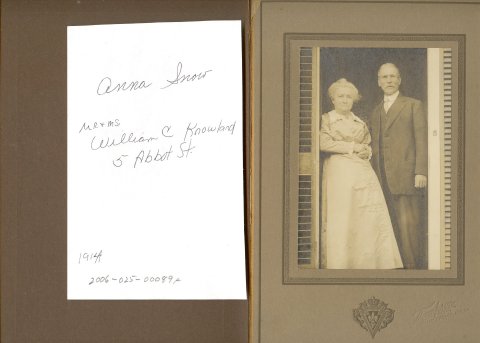 Anna Snow
Mr & Ms
William C Knowland
5 Abbot St
1914
2006-025-00089